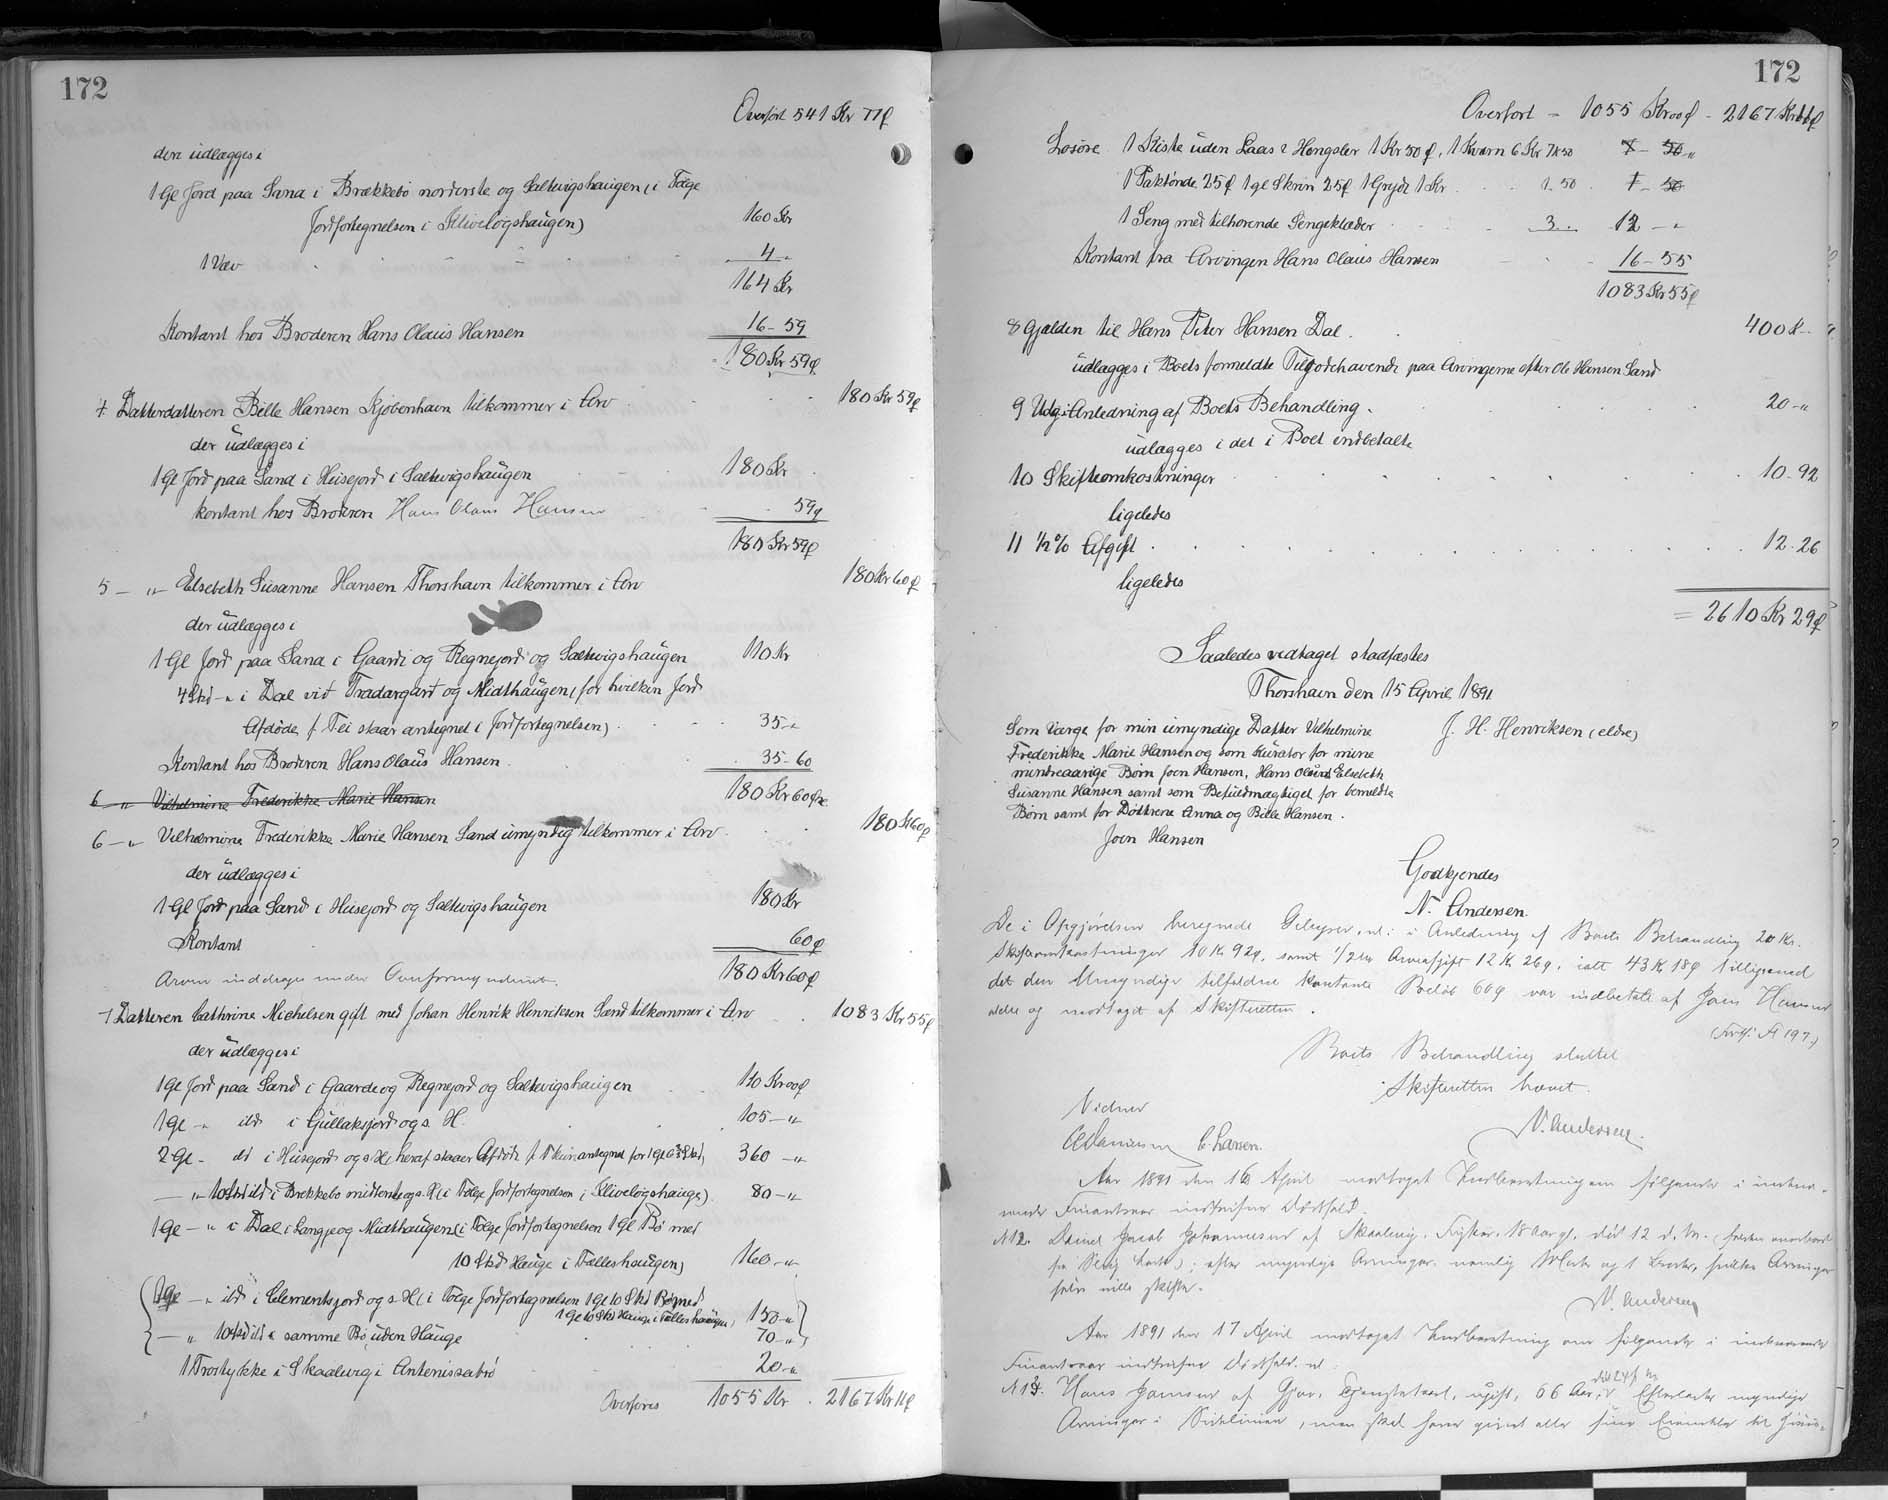 172
Overført 541 Kr 77ø
der udlægges i
1 Gl Jord paa Sand i Brækkebø norderste og Saltvigshaugen (i Følge
Jordfortegnelsen i Sliveløgshaugen) 160 Kr
1 Væv 4 "
164 Kr
Kontant hos Broderen Hans Olaus Hansen 16-59
180 Kr 59ø
4 Datterdatteren Bille Hansen Kjøbenhavn tilkommer i Arv 180 Kr 59ø
der udlægges i
1 Gl Jord paa Sand i Heisejord i Saltvigshaugen 180 Kr
kontant hos Broderen Hans Olaus Hansen 59ø
180 Kr 59ø
5 - " - Elsebeth Susanne Hansen Thorshavn tilkommer i Arv 180 Kr 60ø
der udlægges i
1 Gl Jord paa Sand i Gaardi og Regnejord og Saltvigshaugen 110 Kr
4 Skd - " i Dal við Tradargarð og Midthaugen (for hvilken Jord
Afdøde f Fei staar antegnet i Jordfortegnelsen) 35 - "
Kontant hos Broderen Hans Olaus Hansen 35-60
6 - " Vilhelmine Frederikke Marie Hansen 180 Kr 60ø
6 - " Vilhelmine Frederikke Marie Hansen Sand umyndig tilkommer i Arv 180 Kr 60ø
der udlægges i
1 Gl Jord paa Sand i Heisejord og Saltvigshaugen 180 Kr
Kontant 60ø
Arven inddrages under Overformynderiet. 180 Kr 60ø
7 Datteren Cathrine Michelsen gift med Johan Henrik Henriksen Sand tilkommer i Arv 1083 Kr 55ø
der udlægges i
1 Gl Jord paa Sand i Gaarde og Regnejord og Saltvigshaugen 110 Kr 00ø
1 Gl - " ibd i Gullaksjord og s. H. 105 - "
2 Gl - di i Heisejord og s. H (heraf staaer Afdøde antegnet for 1 Gl 360 - "
- " 10 Skd ibd i Brekkebø midterste og s. H (i Følge Jordfortegnelsen i Sliveløgshauge) 80 - "
1 Gl - " i Dal i Langje og Midthaugen (i Følge Jordfortegnelsen 1 Gl Bø med
10 Skd Hauge i Fælleshaugen) 160 - "
1 Gl - " ibd i Clementsjord og s. H (i Følge Jordfortegnelsen 1 Gl 10 Skd Bø med
1 Gl 10 Skd Hauge i Fælleshaugen) 150 - "
- " 10 Skd ibd i samme Bø uden Hauge 70 - "
1 Trøstykke i Skaalvig i Antenissabø 20 - "
Overføres 1055 Kr. 2167 Kr 11ø
172
Overført - 1055 Kr 00ø - 2167 Kr 11ø
Løsøre 1 Kiste uden Laas & Hengsler 1 Kr 50ø, 1 Kværn 6 Kr 7 Kr 50 7 - 50 "
1 Saktønde 25ø 1 gl Skrin 25ø 1 Gryde 1 Kr 1-50 1 - 50
1 Seng med tilhørende Sengeklæder 3 - 12 - "
Kontant fra Arvingen Hans Olaus Hansen 16-55
1083 Kr 55ø
8 Gjælden til Hans Peter Hansen Dal 400 Kr - "
udlægges i Boets formeldte Tilgodehavende paa Arvingerne efter Ole Hansen Sand
9 Udg. i Anledning af Boets Behandling 20 - "
udlægges i det i Boet indbetalte
10 Skifteomkostninger 10-92
ligeledes
11 ½ % Afgift 12-26
ligeledes
= 2610 Kr 29ø
Saaledes vedtaget stadfæstes
Thorshavn den 15 April 1891
Som Værge for min umyndige Datter Vilhelmine J. H. Henriksen (eldre)
Frederikke Marie Hansen og som Kurator for mine
mindreaarige Børn Joen Hansen, Hans Olaus & Elsebeth
Susanne Hansen samt som Befuldmægtiget for bemeldte
Børn samt for Døttrene Anna og Bille Hansen.
Joen Hansen
Godkjendes
N. Andersen.
De i Opgjørelsen beregnede Gebyrer, nl: i Anledning af Boets Behandling 20 Kr.
Skifteomkostninger 10 Kr 92ø, samt ½ % Arveafgift 12 Kr 26ø, ialt 43 Kr 18ø tilligemed
det den Umyndige tilfaldne kontante Beløb 60ø var indbetalt af Joen Hansen
ældre og modtaget af Skifteretten.
(Forts. Fl 197)
Boets Behandling sluttet
Skifteretten hævet.
N. Andersen.
Vidner
C. Larsen.
Aar 1891 den 16 April modtaget Indberetning om følgende i indeværende
Finantsaar indtrufne Dødsfald.
N 12. Daniel Jacob Johannesen af Skaalevig, Fisker, 18 Aar gl. død 12 d. M.
efter myndige Arvinger, nemlig hvilke Arvinger
selv ville skifte.
N. Andersen
Aar 1891 den 17 April modtaget Indberetning om følgende i indeværende
Finantsaar indtrufne Dødsfald nl:
N 13. Hans Joensen af Gjov, ugift, 66 Aar, Efterlader myndige
Arvinger i Sidelinien, men skal have givet alle sine Eiendele til